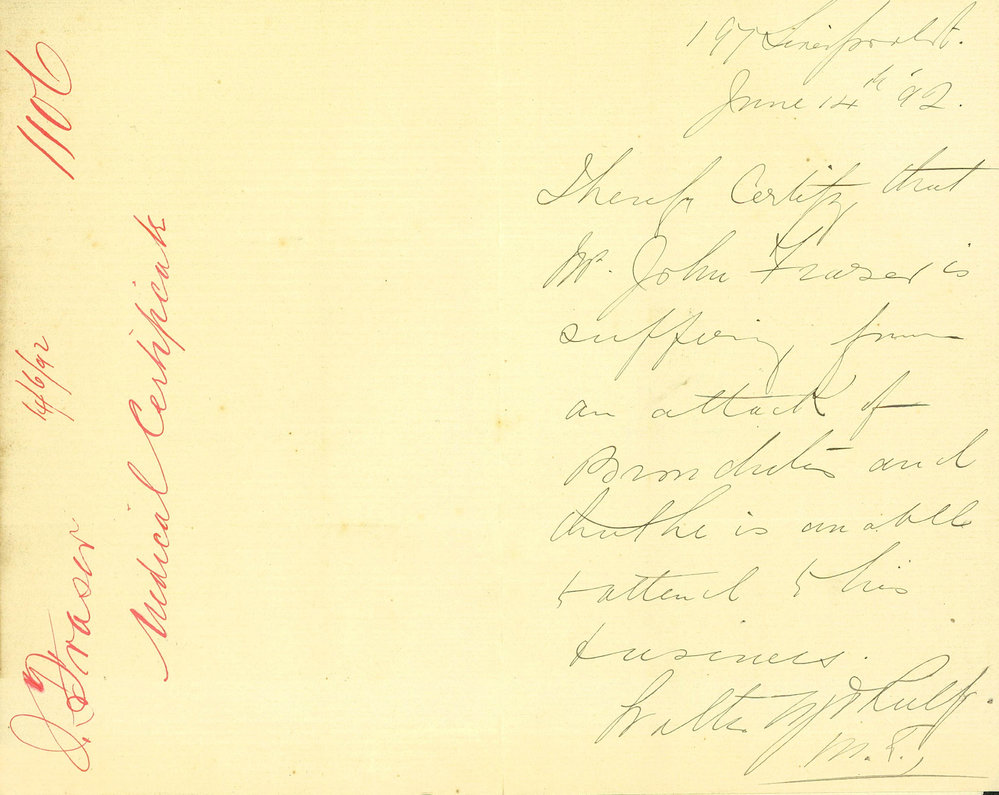 1106
14/6/92
J. Fraser
Medical Certificate
197 Liverpool St.
June 14th 92.
I hereby Certify that
Mr. John Fraser is
suffering from
an attack of
Bronchitis and
that he is unable
to attend to his
business.
Walter